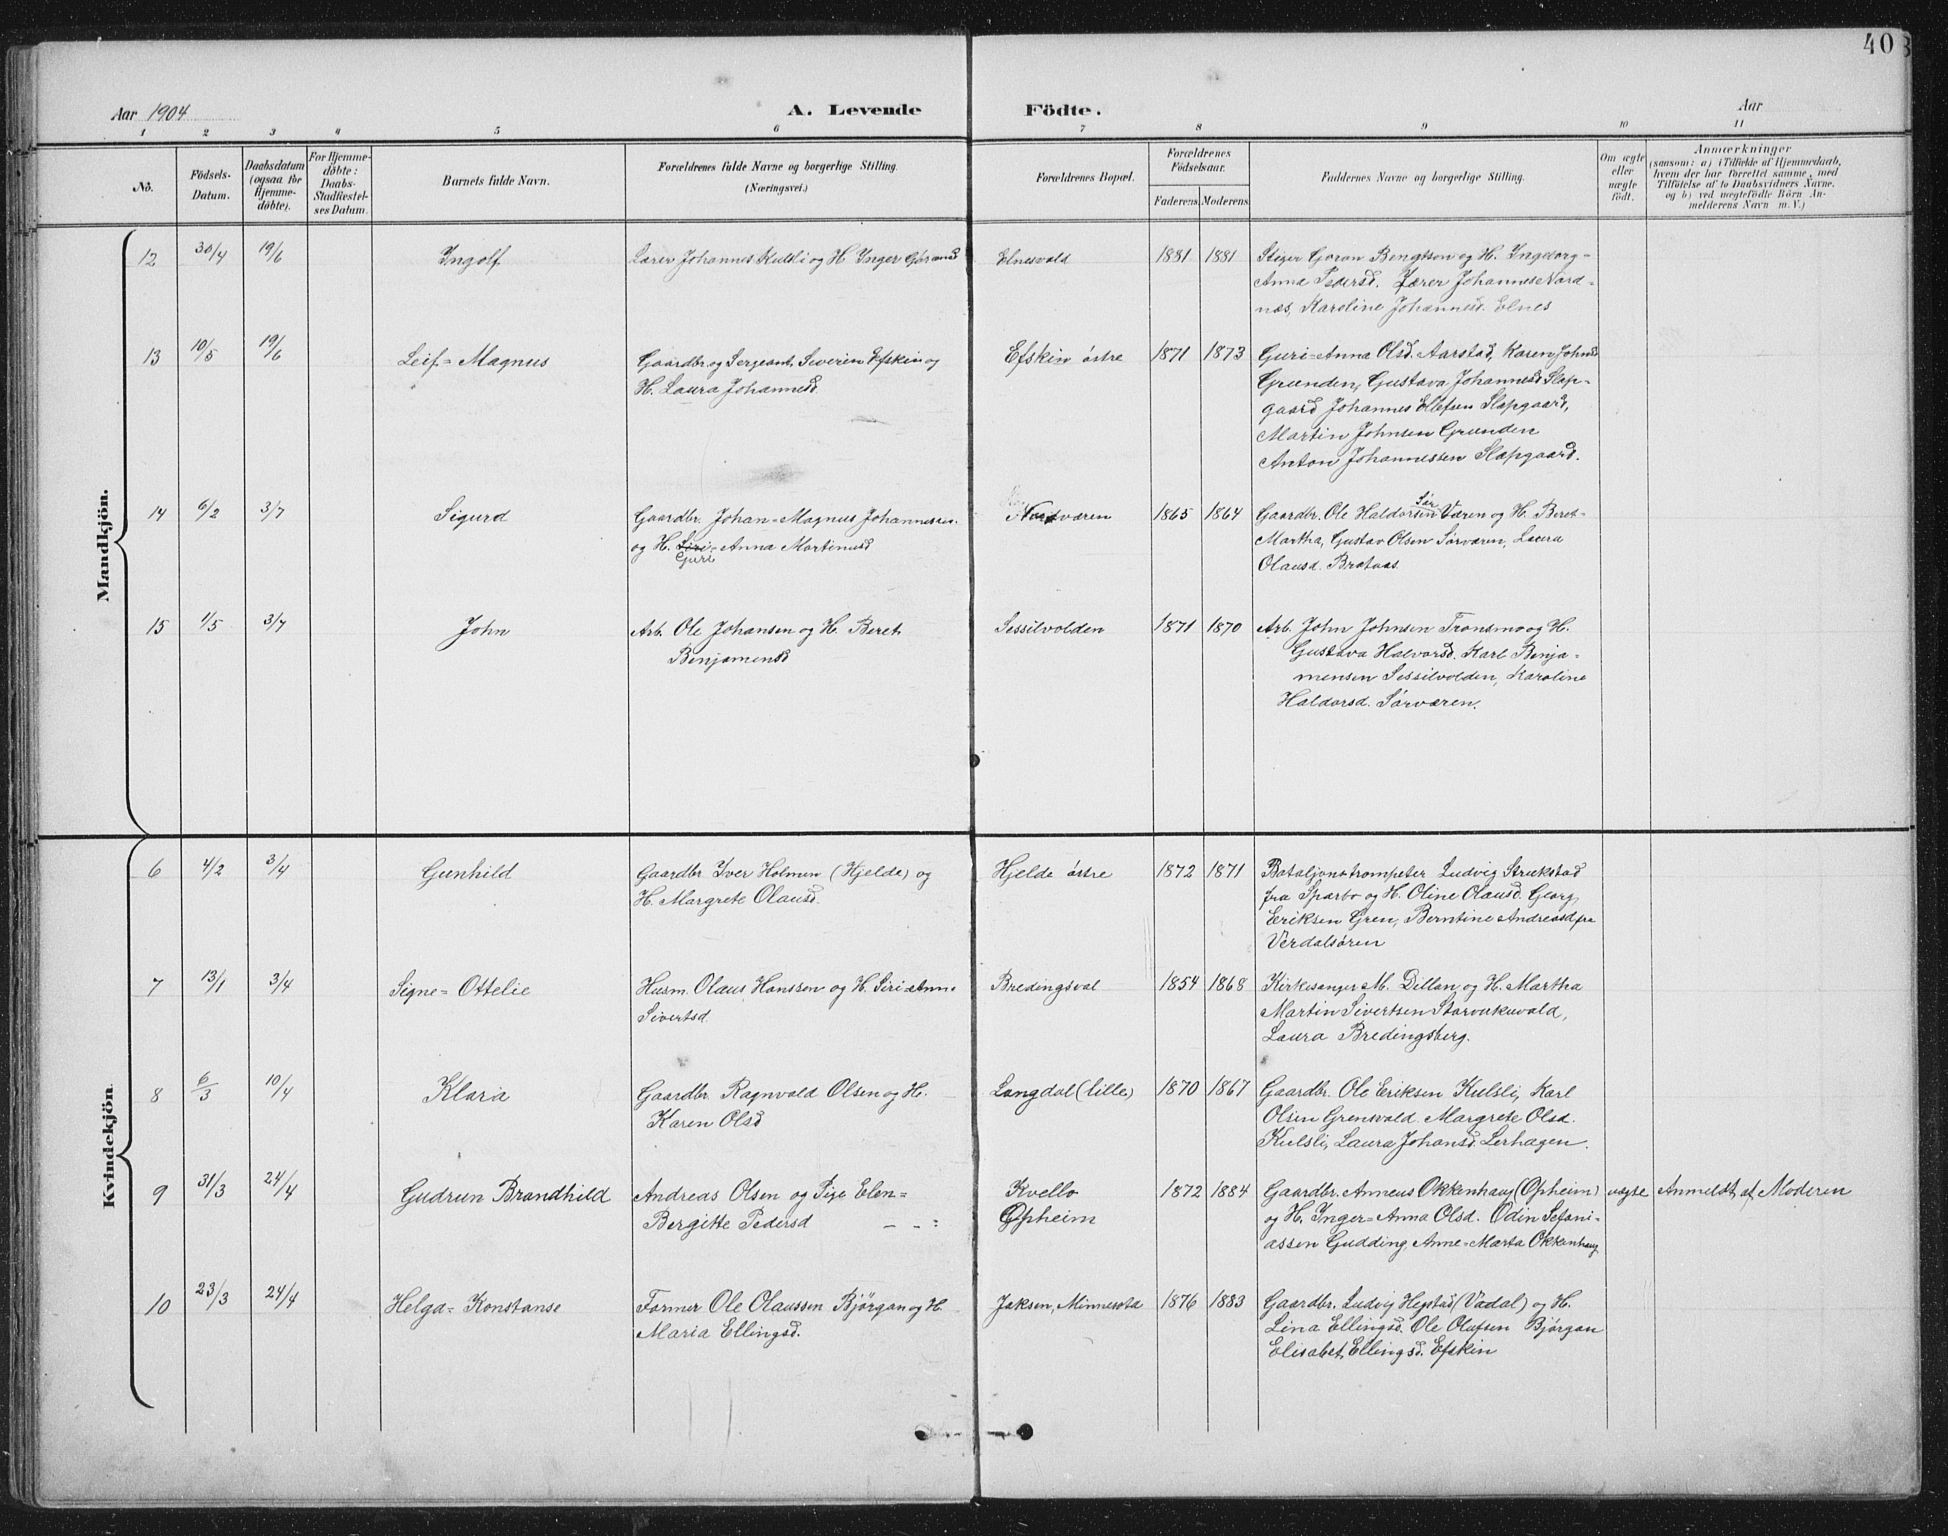 40
Aar 1904 A. Levende Födte. Aar
1 2 3 4 5 6 7 8 9 10 11
No.
Födsels-
Datum.
Daabsdatum
(ogsaa for
Hjemme-
døbte).
For Hjemme-
døbte:
Daabs-
Stadfæstel-
ses Datum.
Barnets fulde Navn.
Forældrenes fulde Navne og borgerlige Stilling.
(Næringsvei.)
Forældrenes Bopæl.
Forældrenes
Födselsaar.
Faderens Moderens
Faddernes Navne og borgerlige Stilling.
Om ægte
eller
uægte
født.
Anmærkninger
(saasom: a) i Tilfælde af Hjemmedaab,
hvem der har forrettet samme, med
Tilföielse af to Daabsvidners Navne,
og b) ved uægtefødte Börn An-
melderens Navn m. V.)
Mandkjön.
12 30/4 19/6 Ingolf
Lærer Johannes Kulsli og H. Inger Göransd
Elnesvold
1881 1881
Stiger Goran Bengtson og H. Ingeborg=
Anna Pedersd. Lærer Johannes Nord=
næs, Karoline Johannesd. Elnes
13 10/5 19/6 Leif= Magnus
Gaardbr. og Sergeant Severin Efskin og
H. Laura Johannesd.
Efskin östre
1871 1873
Guri=Anna Olsd. Aarstad, Karen Johnsd
Grunden, Gustava Johannesd Slap-
gaard Johannes Ellefsen Slapgaard,
Martin Johnsen Grunden
Anton Johannessen Slapgaard.
14 6/2 3/7 Sigurd
Gaardbr. Johan=Magnus Johannessen
og H. Siri=Anna Martinusd
Guri
Nordværen
1865 1864
Gaardbr. Ole Haldorsen Sør Væren og H. Beret-
Martha, Gustav Olsen Sørværen, Laura
Olausd. Brataas.
15 1/5 3/7 John
Arb. Ole Johansen og H. Beret
Benjamensd
Sessilvolden
1871 1870
Arb. John Johnsen Tronsmo og H.
Gustava Halvorsd. Karl Benja-
mensen Sessilvolden, Karoline
Haldorsd. Sørværen.
Kvindekjön.
6 4/2 3/4 Gunhild
Gaardbr Iver Holmen (Hjelde) og
H. Margrete Olausd.
Hjelde östre
1872 1871
Bataljonstrompeter Ludvig Strukstad
fra Sparbo og H. Oline Olausd. Georg
Eriksen Gren, Berntine Andreasd fra
Verdalsören
7 13/1 3/4 Signe= Ottelie
Husm. Olaus Hanssen og H. Siri=Anna
Sivertsd.
Bredingsval
1854 1868
Kirkesanger M. Dillan og H. Martha
Martin Sivertsen Storvukuvald,
Laura Bredingsberg.
8 6/3 10/4 Klara
Gaardbr. Ragnvald Olsen og H.
Karen Olsd
Langdal (lille)
1870 1867
Gaardbr. Ole Eriksen Kulsli, Karl
Olsen Grensvald. Margrete Olsd.
Kulsli, Laura Johansd. Lerhagen.
9 31/3 24/4 Gudrun Brandhild
Andreas Olsen og Pige Elen=
Bergitte Pedersd
Kvello
Opheim
1872 1884
Gaardbr. Anneus Okkenhaug (Opheim)
og H. Inger=Anna Olsd. Odin Sefani-
assen Gudding, Anne=Marta Okkenhaug
uægte Anmeldt af Moderen
10 23/3 24/4 Helga= Konstanse
Farmer Ole Olaussen Björgan og H.
Maria Ellingsd.
Jaksen, Minnesota
1876 1883
Gaardbr. Ludvig Hegstad (Vadal) og H.
Lina Ellingsd. Ole Olufsen Björgan
Elisabet Ellingsd. Efskin